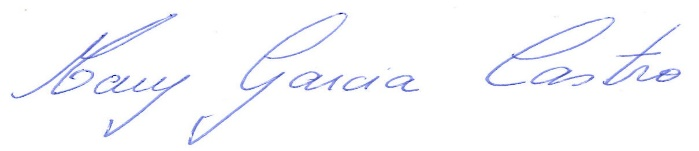 Mary Garcia Castro